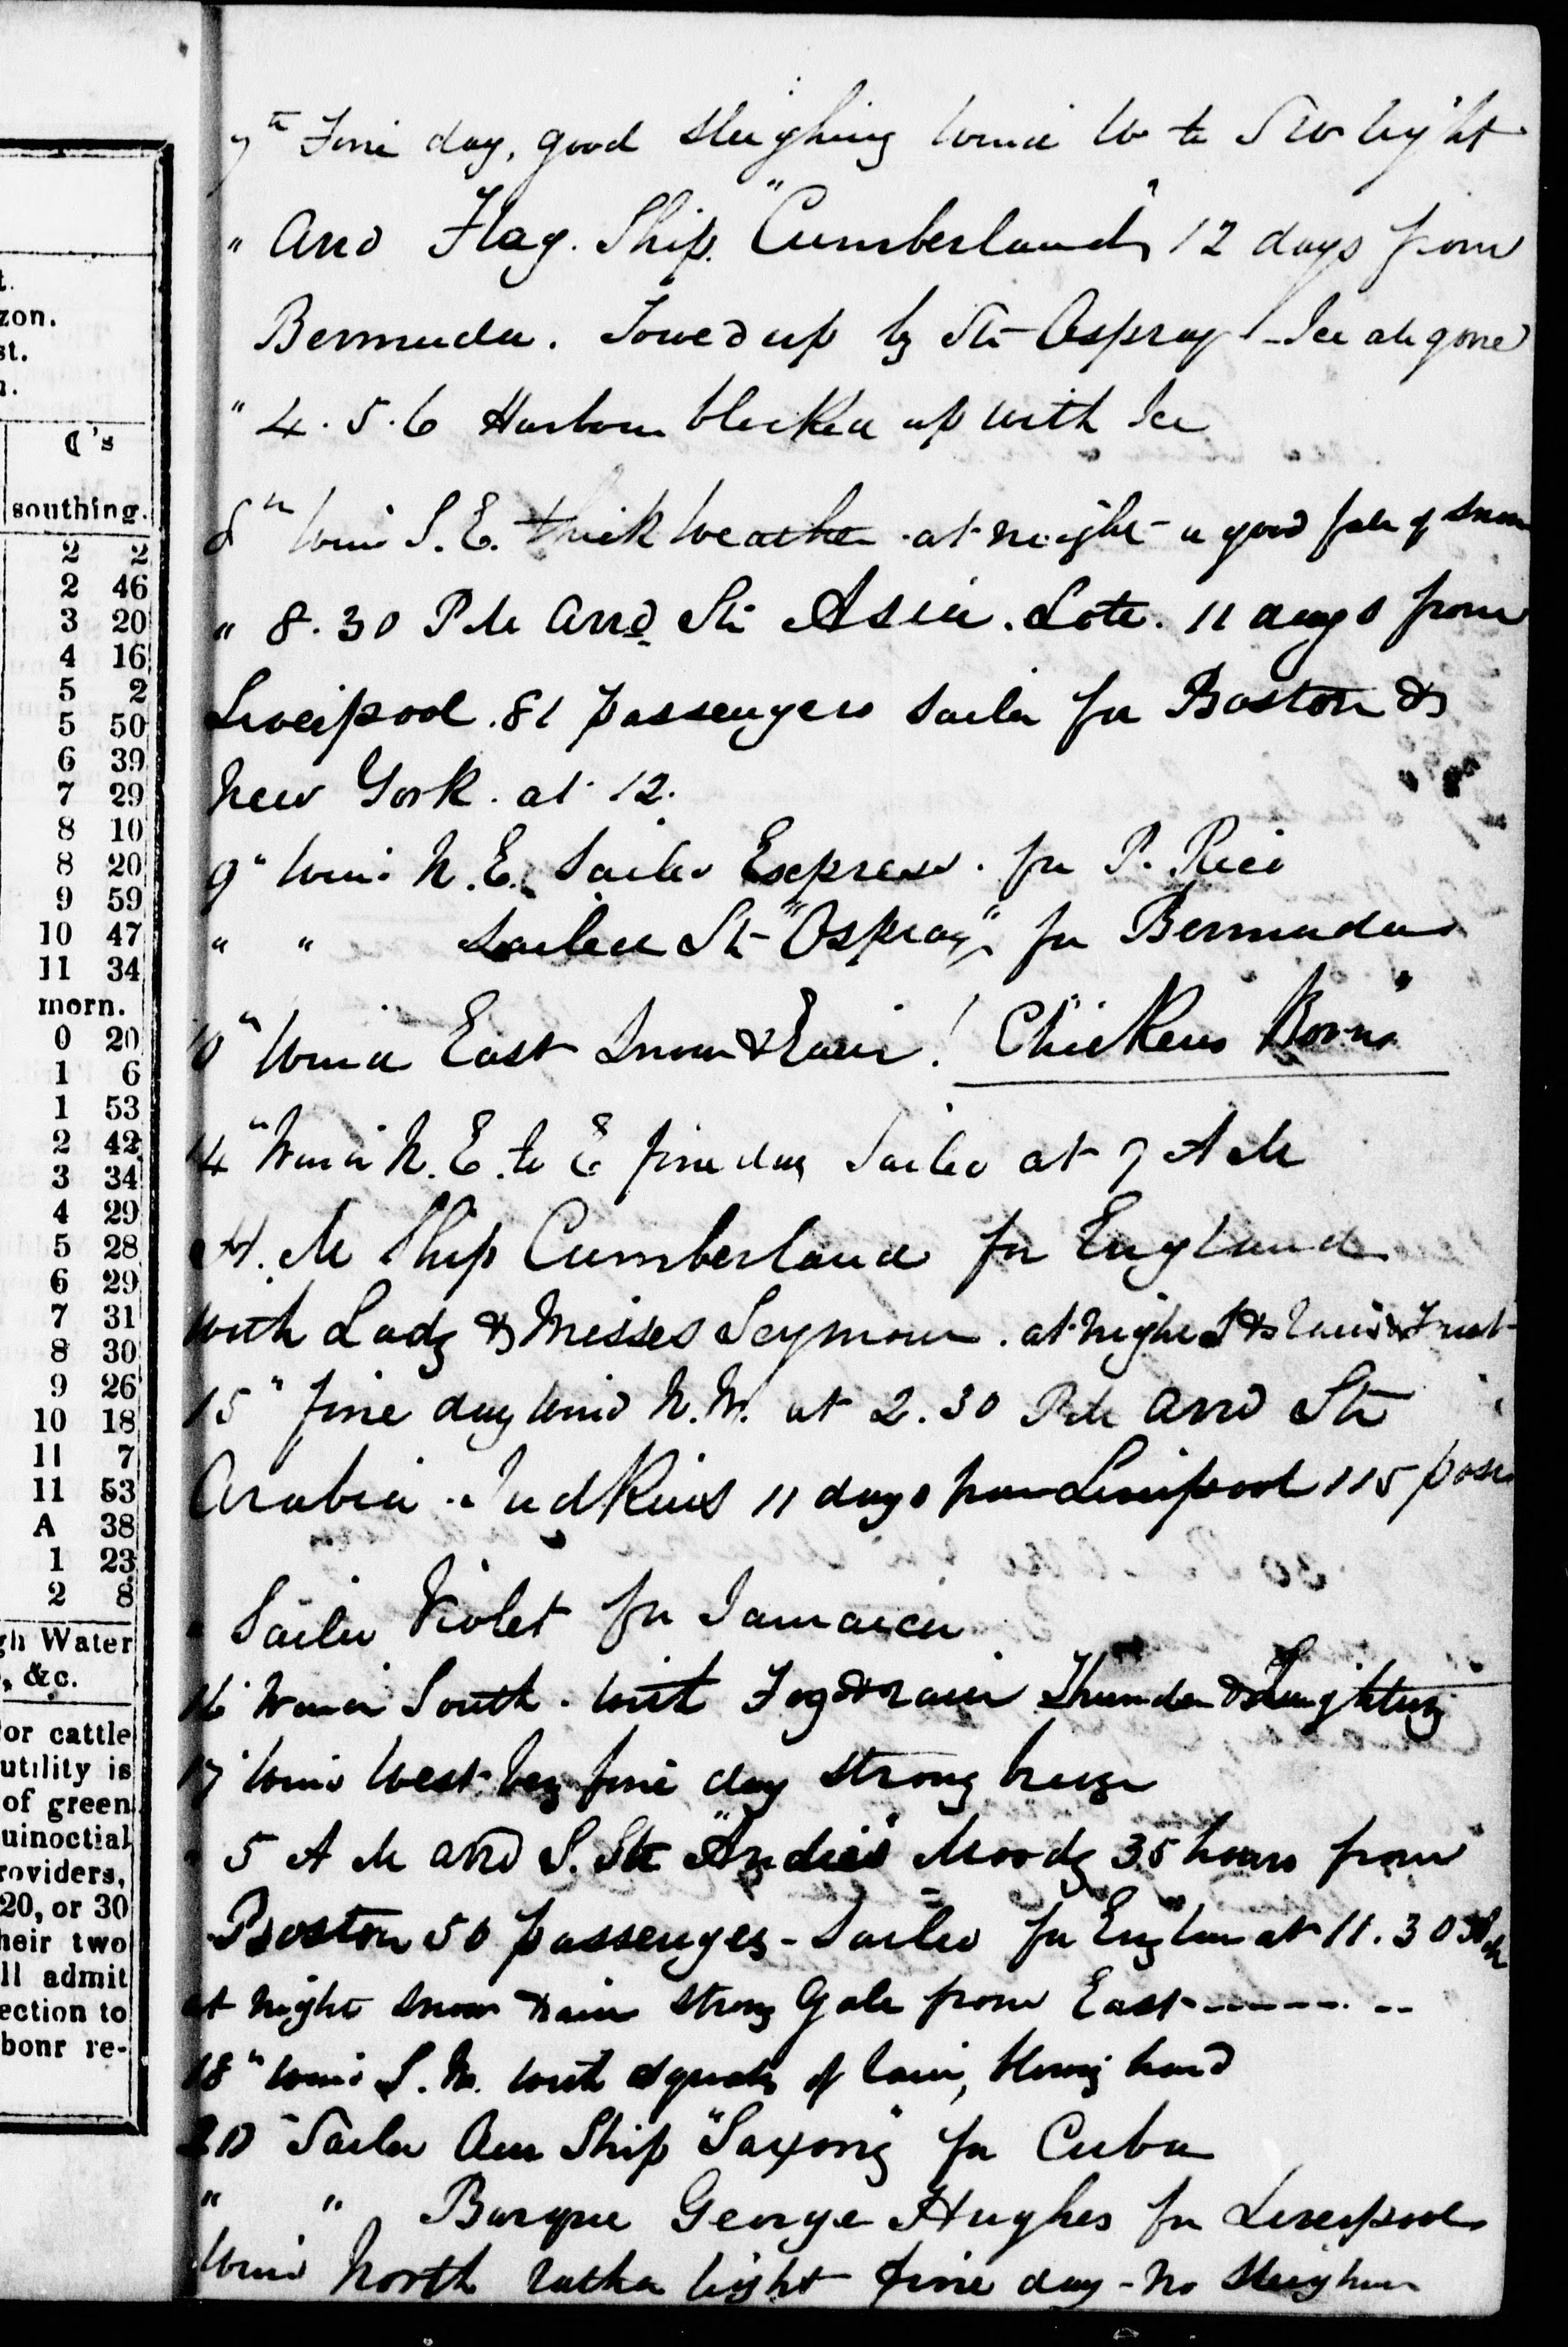 t.
zon.
st.
n.
☾'s
southing.
2 2
2 46
3 20
4 16
5 2
5 50
6 39
7 29
8 10
8 20
9 59
10 47
11 34
morn.
0 20
1 6
1 53
2 42
3 34
4 29
5 28
6 29
7 31
8 30
9 26
10 18
11 7
11 53
A 38
1 23
2 8
gh Water
, &c.
or cattle
utility is
of green
uinoctial
roviders,
20, or 30
heir two
ll admit
ection to
bonr re-
7th Fine day, good sleighing Wind W to SW light
" Arrd Flag. Ship "Cumberland" 12 days from
Bermuda. Towed up by Str Ospray - Ice all gone
" 4.5.6 Harbour blocked up with Ice
8th Wind S.E. thick weather at night a good fall of snow
" 8.30 PM Arrd Str Asia. Lott. 11 days from
Liverpool. 81 passengers sailed for Boston &
New York. at 12.
9" Wind N.E. Sailed Express. for P. Rico
" " Sailed Str "Ospray" for Bermuda
10" Wind East Snow & Rain! "Chickens Born"
14" Wind N.E. to E fine day Sailed at 7 AM
H.M Ship Cumberland for England
with Lady & Misses Seymour. at night
15" fine day Wind N.W. at 2.30 PM Arrd Str
Arabia. Judkins 11 days from Liverpool 115 pass
" Sailed Violet for Jamaica
16" Wind South. with Fog & rain Thunder & Lightning
17" Wind West fine day strong breeze
" 5 AM arrd S. Str Moody 35 hours from
Boston 50 passengers - Sailed for England at 11.30
at night snow & rain strong Gale from East - - - -
18" Wind S.W. with squalls of rain, blowing hard
20" Sailed Am Ship "Saxony" for Cuba
" " Barque George Hughes for Liverpool
Wind North rather light fine day - No Sleighing